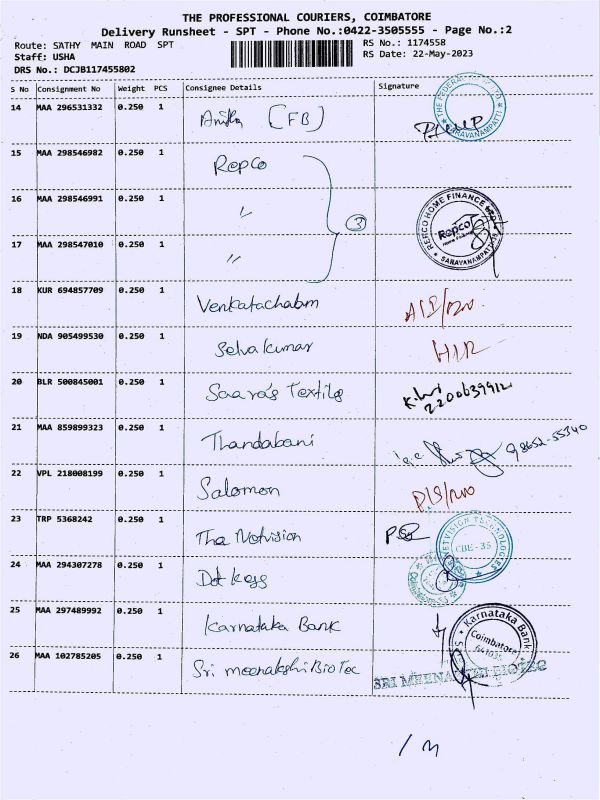 THE PROFESSIONAL COURIERS, COIMBATORE
Delivery Runsheet - SPT - Phone No.:0422-3505555 - Page No.:2
Route: SATHY MAIN ROAD SPT RS No.: 1174558
Staff: USHA RS Date: 22-May-2023
DRS No.: DCJB117455802
S No Consignment No Weight PCS Consignee Details Signature
14 MAA 296531332 0.250 1 (FB)
15 MAA 298546982 0.250 1 Repco
16 MAA 298546991 0.250 1 "
3
REPCO HOME FINANCE
Repco
Home Finance
SARAVANAMPATTI
17 MAA 298547010 0.250 1 "
18 KUR 694857709 0.250 1 Venkatachalam
19 NDA 905499530 0.250 1 Selvakumar
20 BLR 500845001 0.250 1 Saaras Textiles
21 MAA 859899323 0.250 1 Thandabani 98652-55340
22 VPL 218008199 0.250 1 Salomon
23 TRP 5368242 0.250 1 The Netvision
VISION TECHNOLOGIES
CBE - 35
24 MAA 294307278 0.250 1 Dot Kegs
25 MAA 297489992 0.250 1 Karnataka Bank
Karnataka Bank
Coimbatore
641035
26 MAA 102785205 0.250 1 Sri meenakshi BioTec
SRI MEENAKSHI BIOTEC